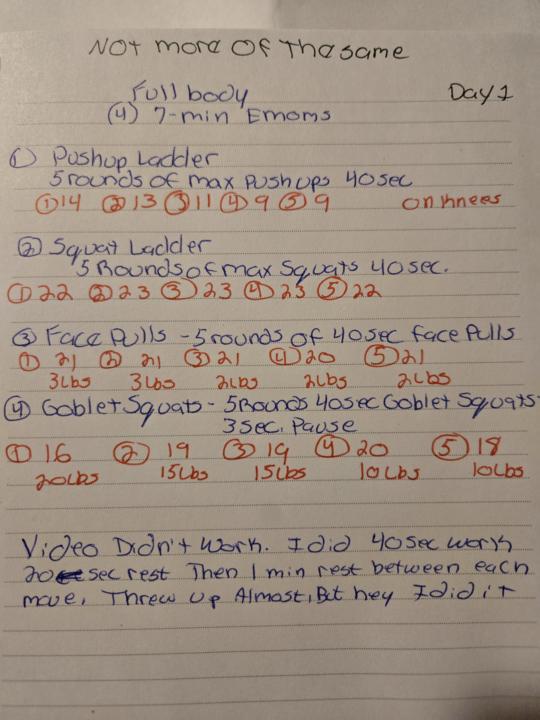 Not more Of The same
Full body Day 1
(4) 7-min Emoms
① Pushup Ladder
5 rounds of max Pushups 40 sec
①14 ②13 ③11 ④9 ⑤9 on knees
② Squat Ladder
5 Rounds of max Squats 40 sec.
①22 ②23 ③23 ④23 ⑤22
③ Face Pulls - 5 rounds of 40 sec face Pulls
① 21 ② 21 ③ 21 ④ 20 ⑤ 21
3 Lbs 3 Lbs 2 Lbs 2 Lbs 2 Lbs
④ Goblet Squats - 5 Rounds 40 sec Goblet Squats
3 sec. Pause
① 16 ② 19 ③ 19 ④ 20 ⑤ 18
20 Lbs 15 Lbs 15 Lbs 10 Lbs 10 Lbs
Video Didn't work. I did 40 sec work
20 sec rest Then 1 min rest between each
move, Threw up Almost, But hey I did it